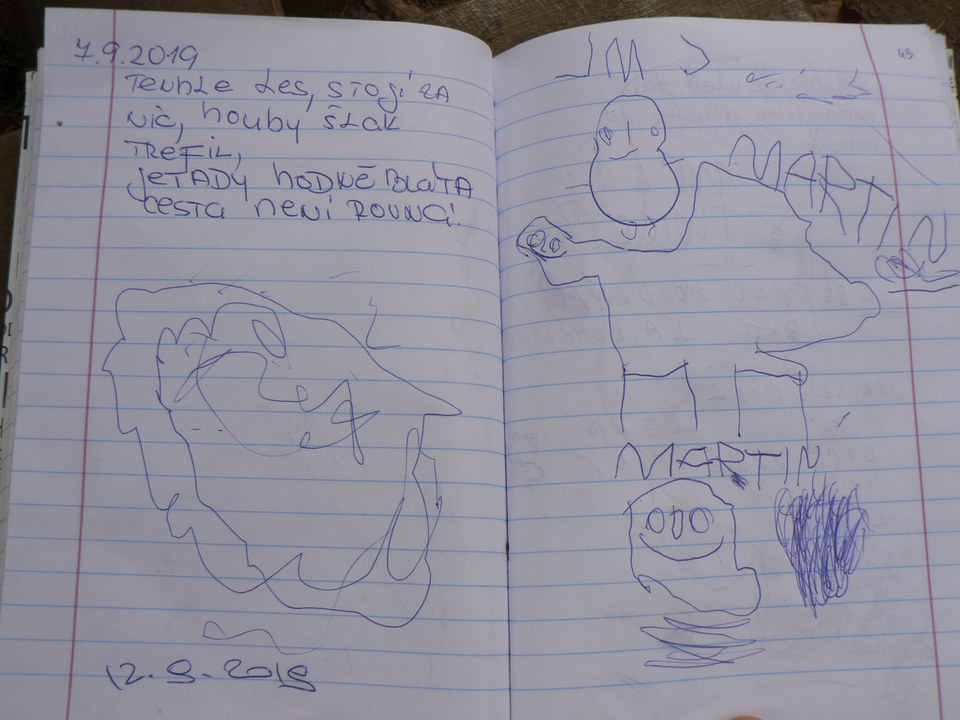 7.9.2019
TENHLE LES, STOJÍ ZA
NIC, HOUBY ŠLAK
TREFIL,
JETADY HODNĚ BLáTA
CESTA NENÍ ROVNÁ!
12.9.2019
43
MARTIN
MARTIN